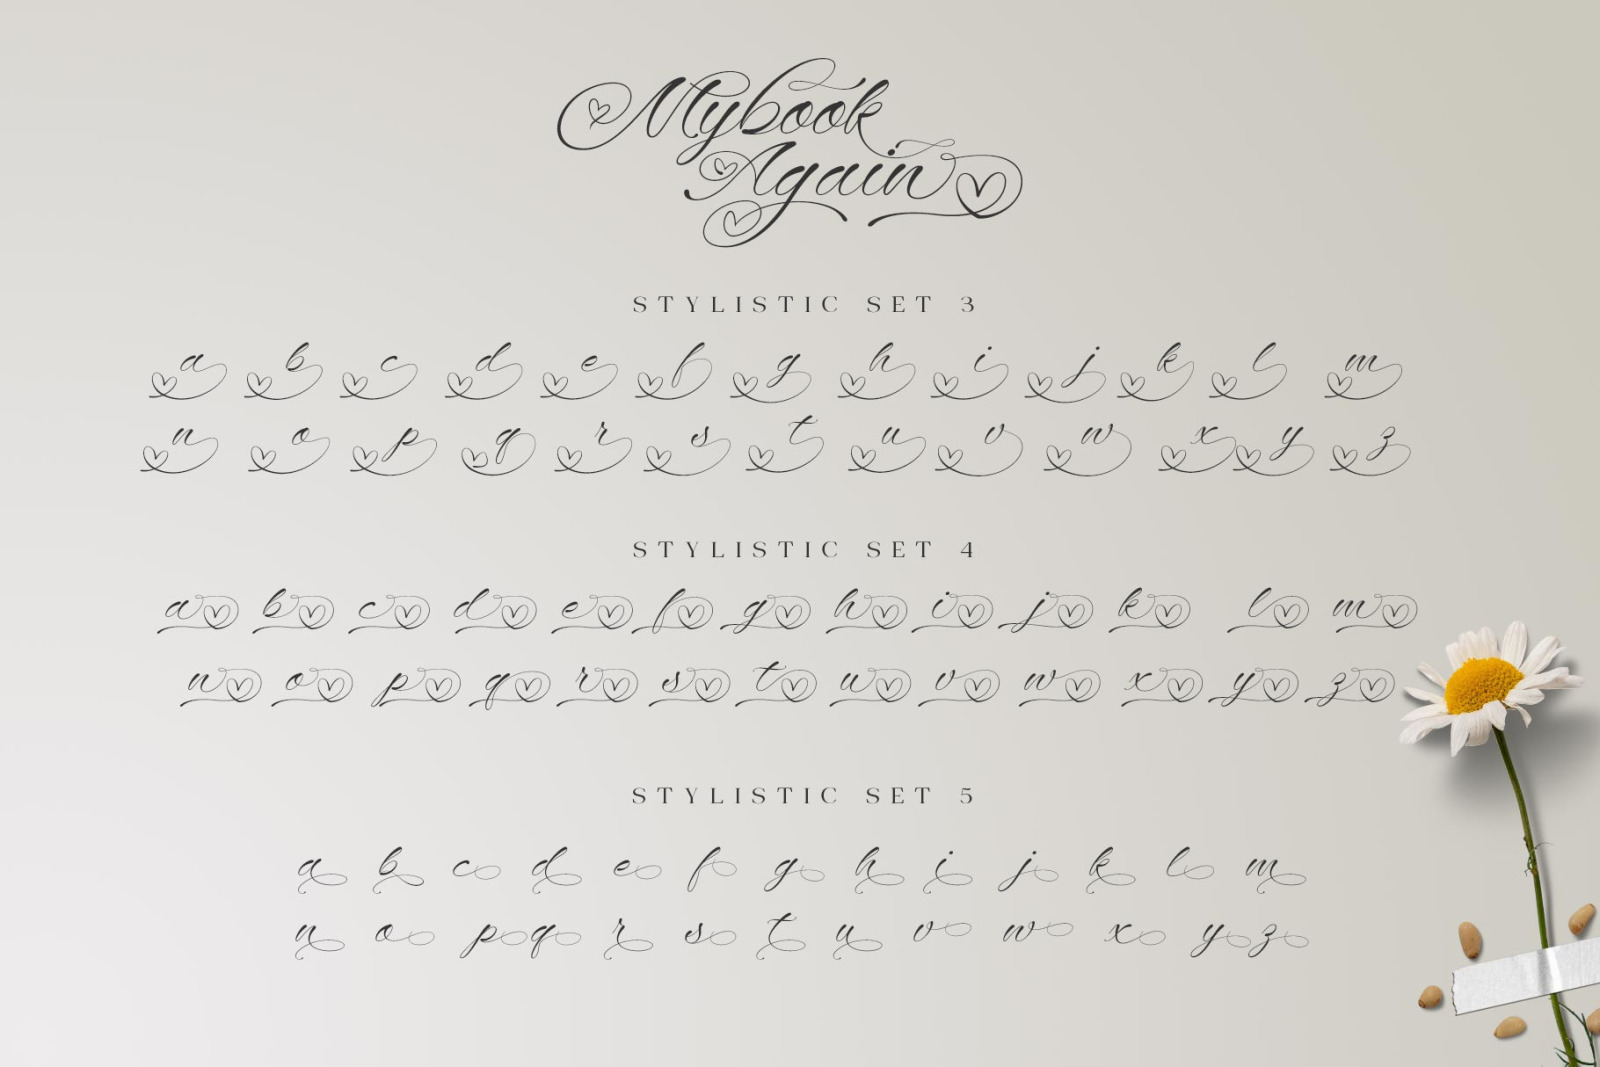 Mybook
Again
STYLISTIC SET 3
a b c d e f g h i j k l m
n o p q r s t u v w x y z
STYLISTIC SET 4
a b c d e f g h i j k l m
n o p q r s t u v w x y z
STYLISTIC SET 5
a b c d e f g h i j k l m
n o p q r s t u v w x y z